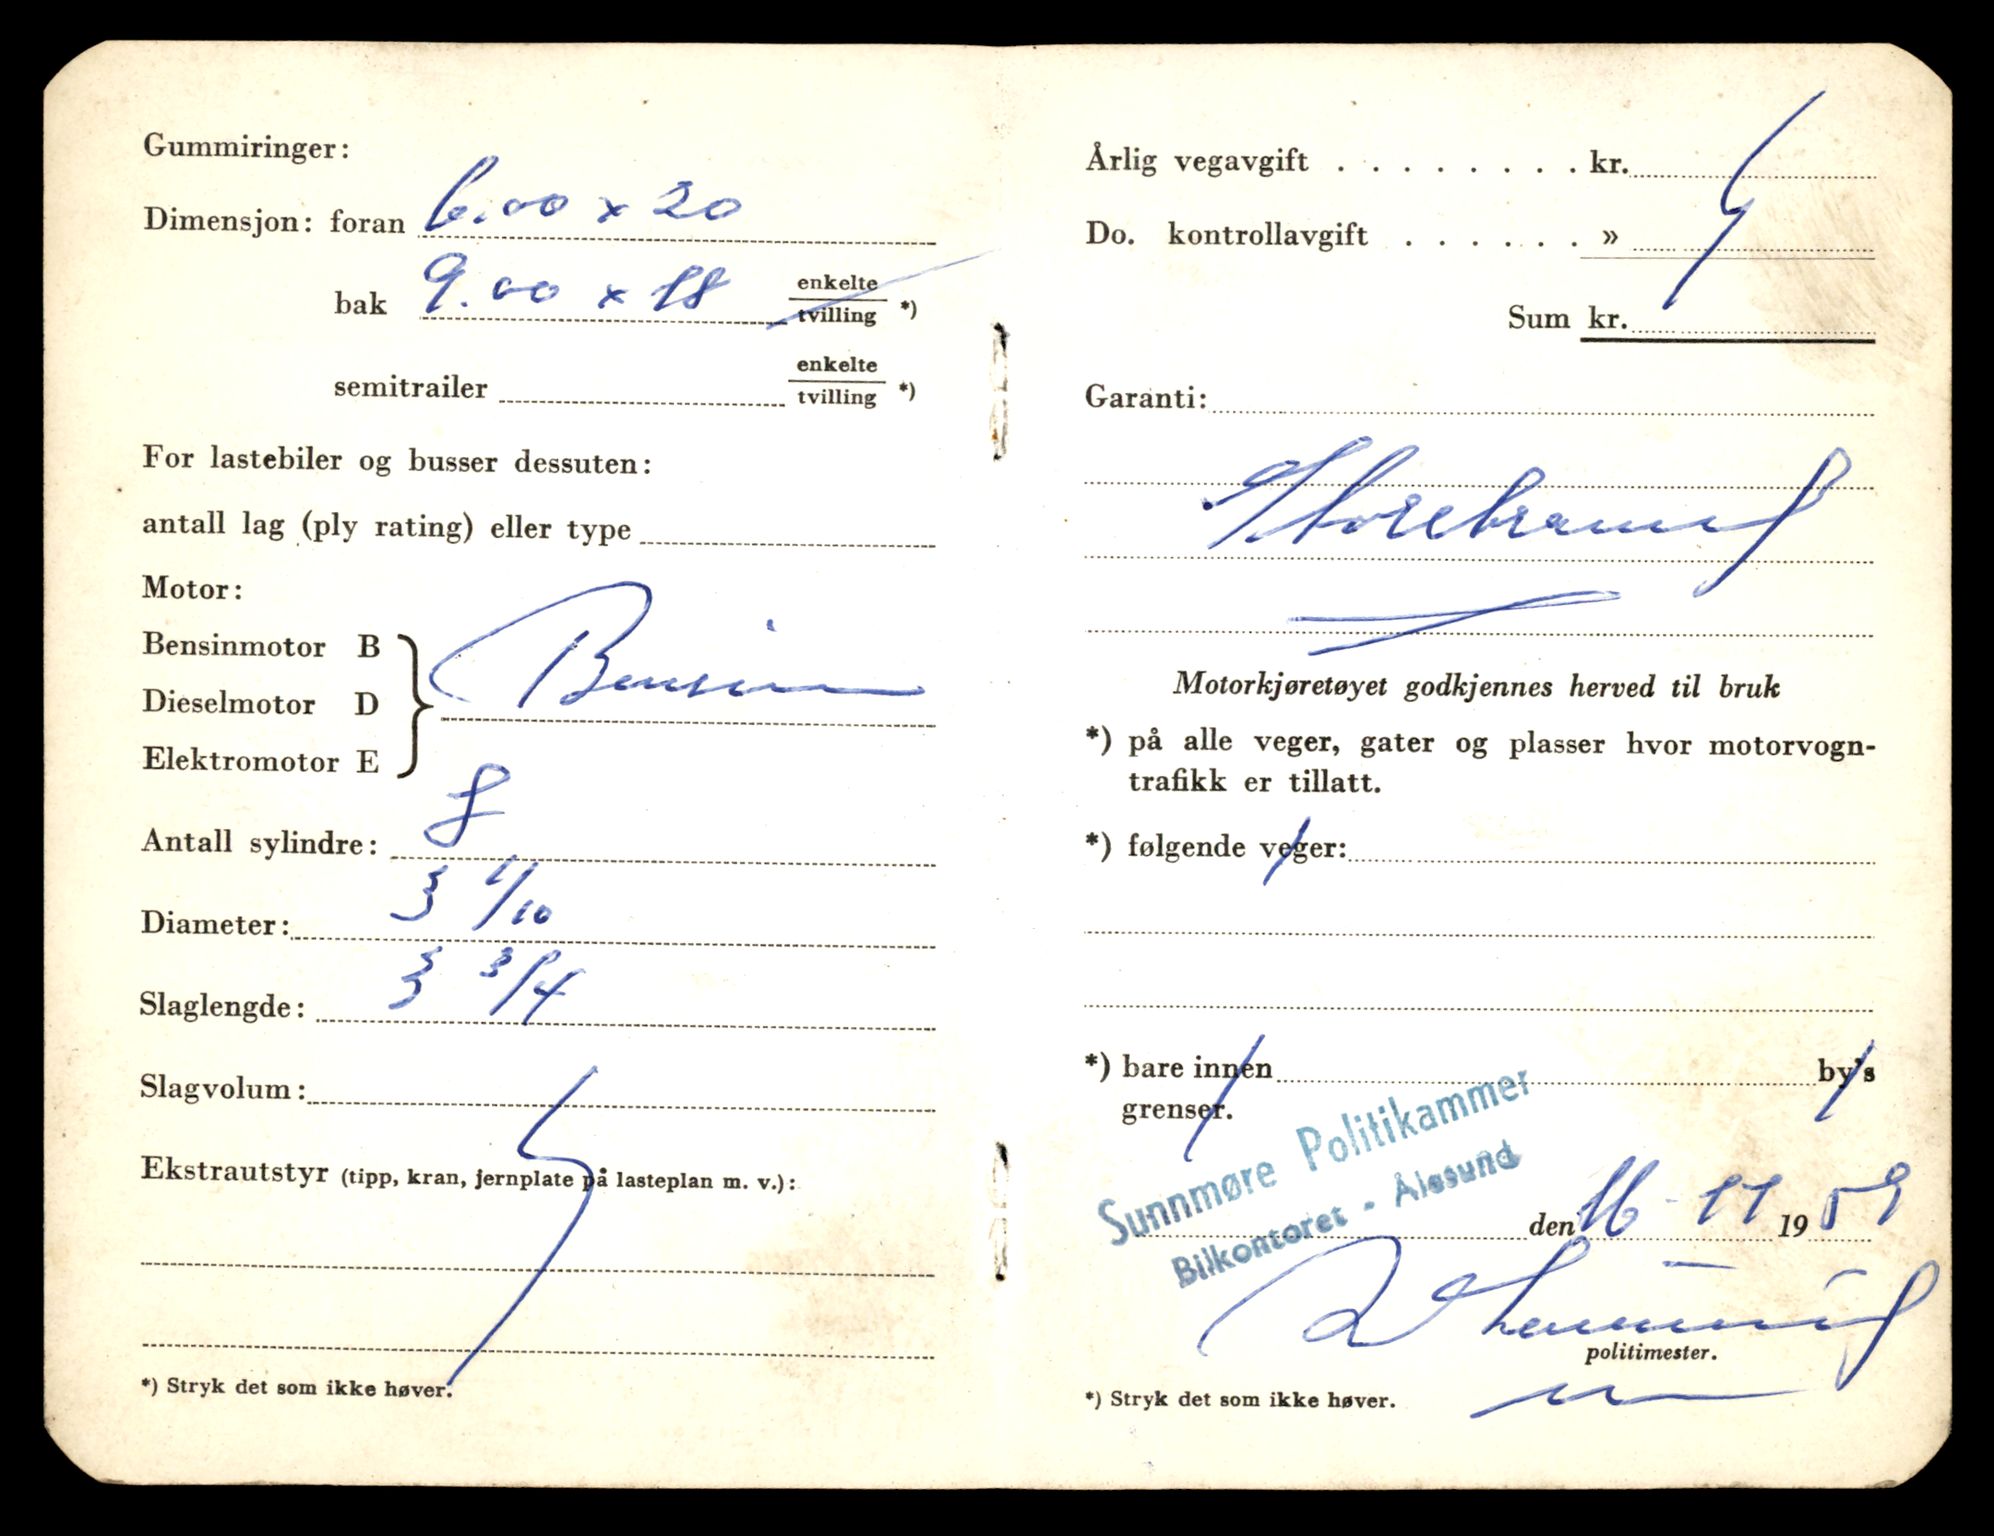 Gummiringer:
Dimensjon: foran 6.00 x 20
bak 9.00 x 18 enkelte
tvilling *)
semitrailer enkelte
tvilling *)
For lastebiler og busser dessuten:
antall lag (ply rating) eller type
Motor:
Bensinmotor B
Dieselmotor D
Elektromotor E
Bensin
Antall sylindre: 8
Diameter: 3 1/10
Slaglengde: 3 3/4
Slagvolum:
Ekstrautstyr (tipp, kran, jernplate på lasteplan m. v.):
*) Stryk det som ikke høver.
Årlig vegavgift . . . . . . . . kr.
Do. kontrollavgift . . . . . . »
Sum kr.
Garanti:
Storebrand
Motorkjøretøyet godkjennes herved til bruk
*) på alle veger, gater og plasser hvor motorvogn-
trafikk er tillatt.
*) følgende veger:
*) bare innen by's
grenser.
Sunnmøre Politikammer
Bilkontoret - Ålesund
den 16-11 1959
politimester.
*) Stryk det som ikke høver.